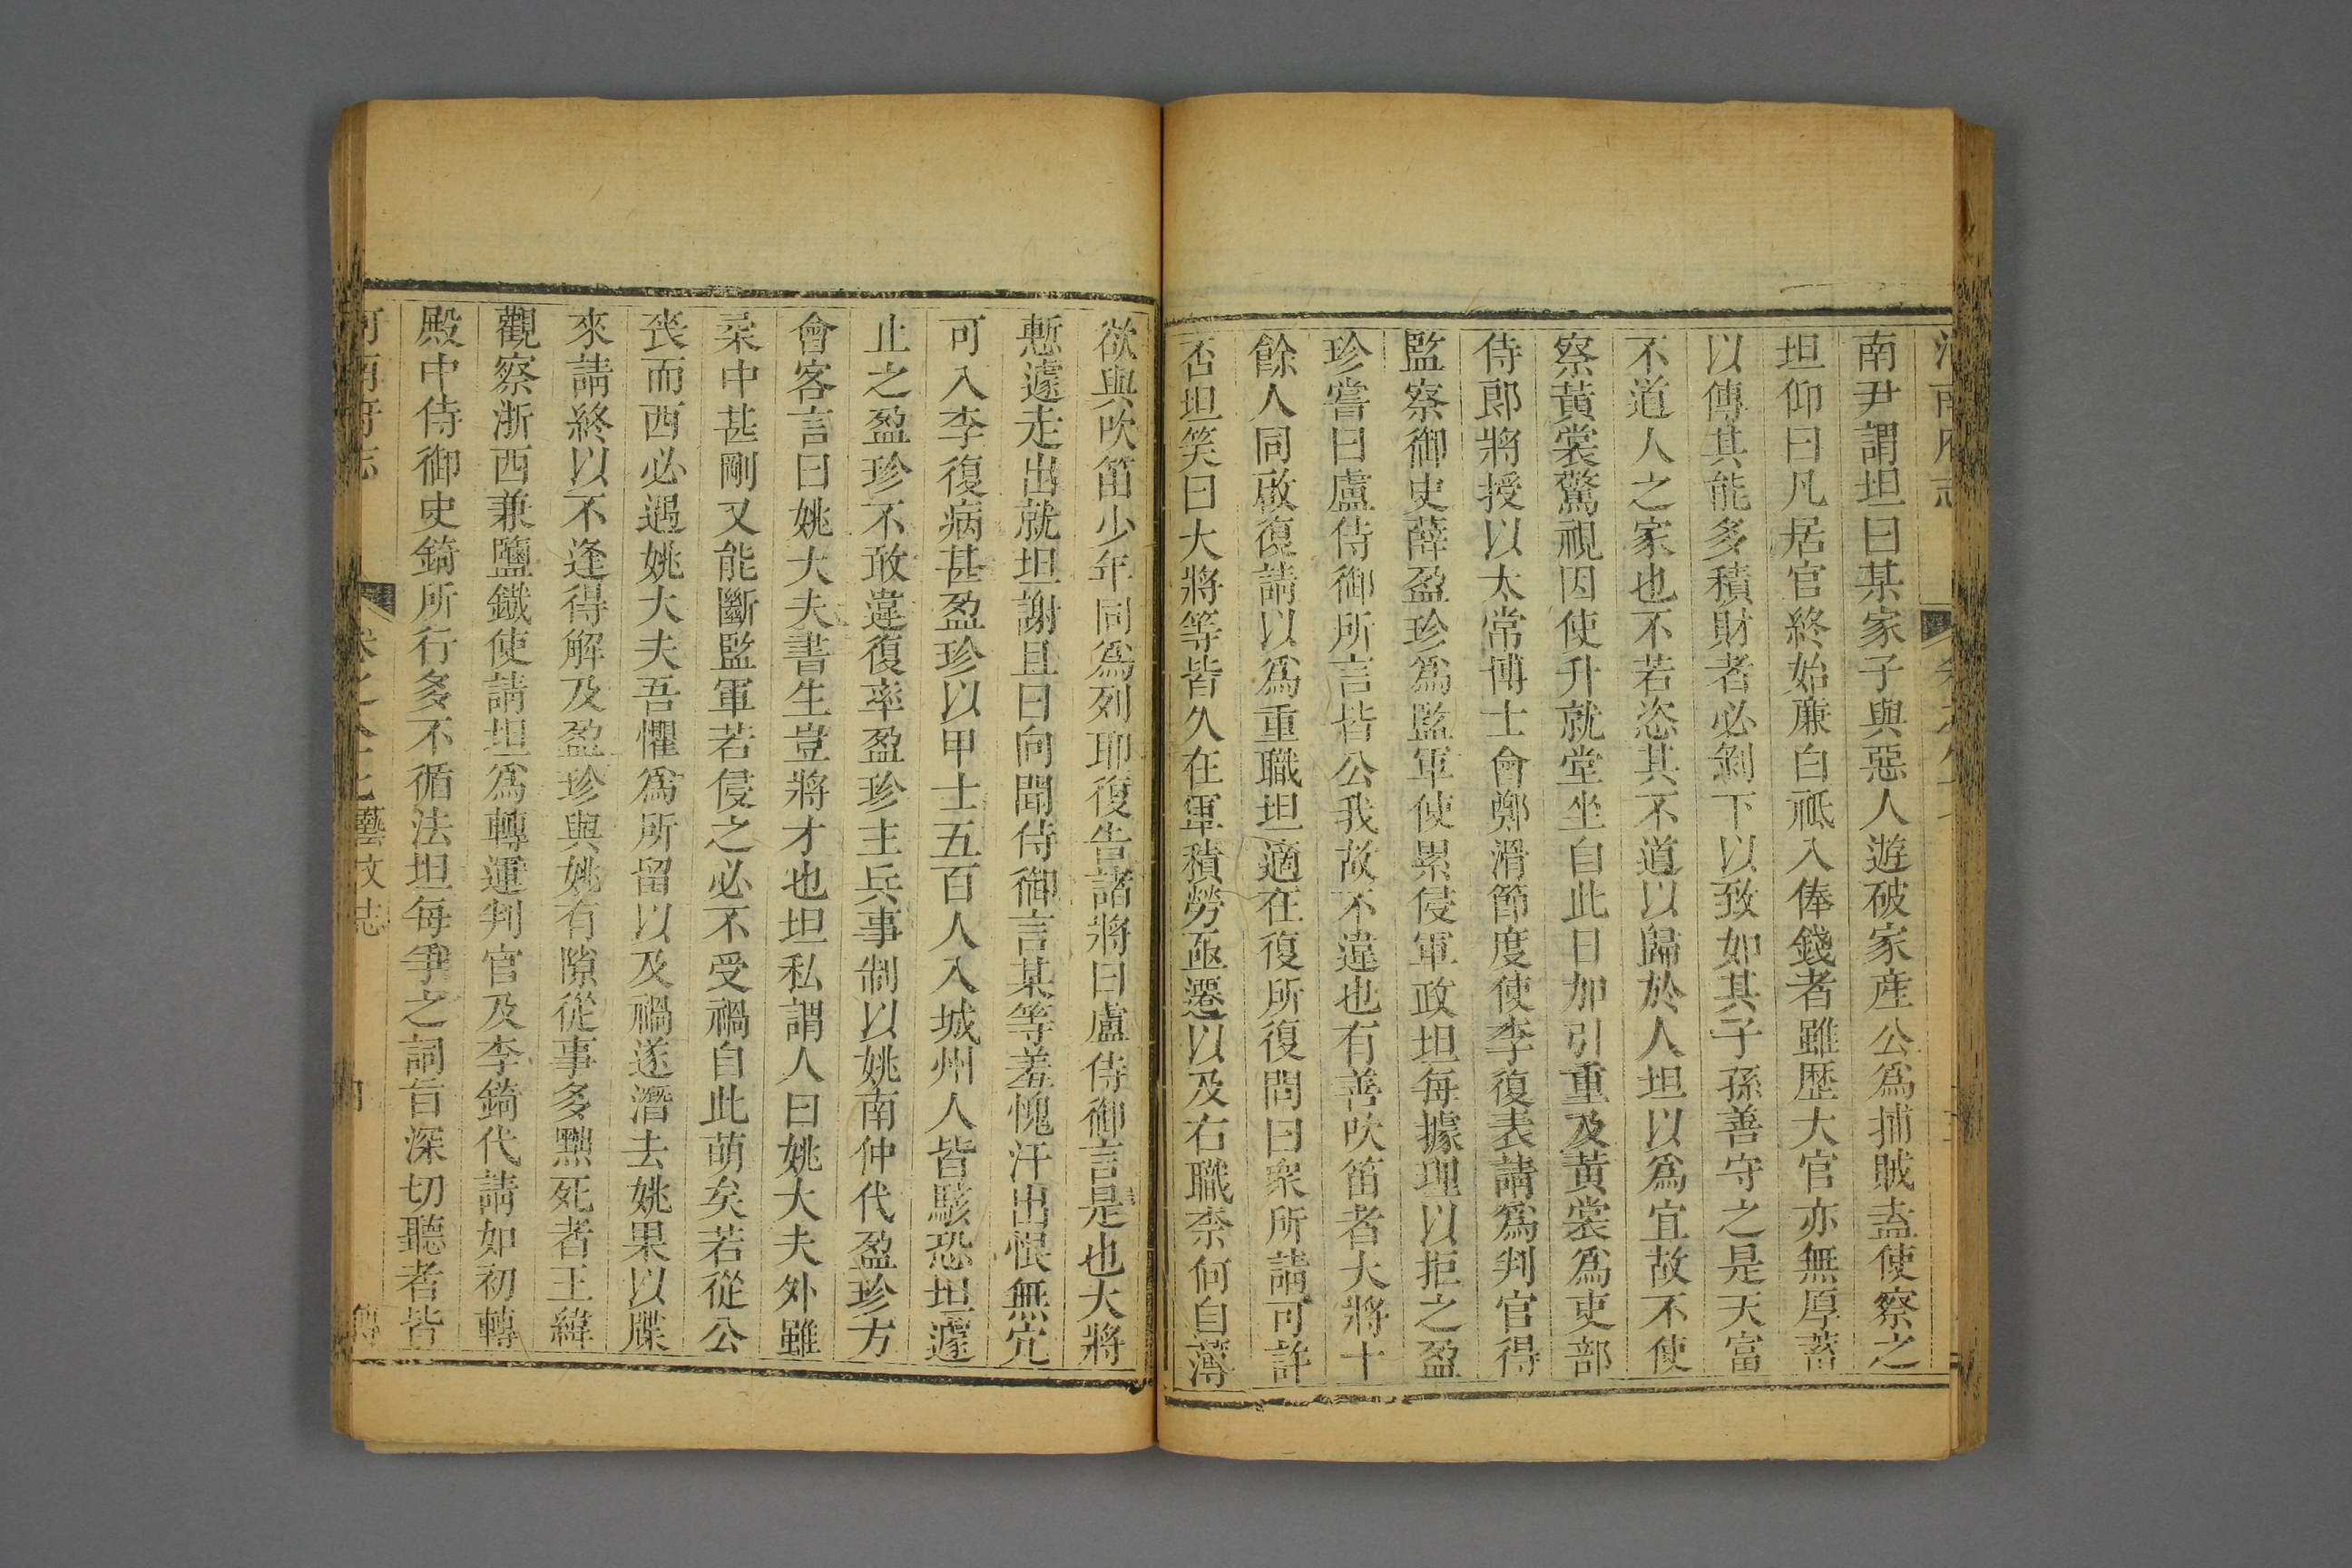 南尹謂坦曰某家子與惡人遊破家産公爲捕賊盍使察之
坦仰曰凡居官終始亷白祗入俸錢者雖歴大官亦無厚蓄
以傳其能多積財者必剝下以致如其子孫善守之是天富
不道人之家也不若恣其不道以歸於人坦以爲宜故不使
察黃裳驚視因使升就堂坐自此日加引重及黃裳爲吏部
侍郎將授以太常博士會鄭滑節度使李復表請爲判官得
監察御史薛盈珍爲監軍使累侵軍政坦每據理以拒之盈
珍嘗曰盧侍御所言皆公我故不違也有善吹笛者大將十
餘人同啟復請以爲重職坦適在復所復問曰衆所請可許
否坦笑曰大將等皆久在軍積勞亟遷以及右職柰何自薄
欲與吹笛少年同爲列耶復告諸將曰盧侍御言是也大將
慙遽走出就坦謝且曰向聞侍御言某等羞愧汗出恨無宂
可入李復病甚盈珍以甲士五百人入城州人皆駭恐坦遽
止之盈珍不敢違復卒盈珍主兵事制以姚南仲代盈珍方
會客言曰姚大夫書生豈將才也坦私謂人曰姚大夫外雖
柔中甚剛又能斷監軍若侵之必不受禍自此萌矣若從公
喪而西必遇姚大夫吾懼爲所留以及禍遂潛去姚果以牒
來請終以不逢得解及盈珍與姚有隙從事多黜死者王緯
觀察浙西兼鹽鐵使請坦爲轉運判官及李錡代請如初轉
殿中侍御史錡所行多不循法坦每爭之詞旨深切聽者皆
河南府志 卷之八十七藝文志 傳